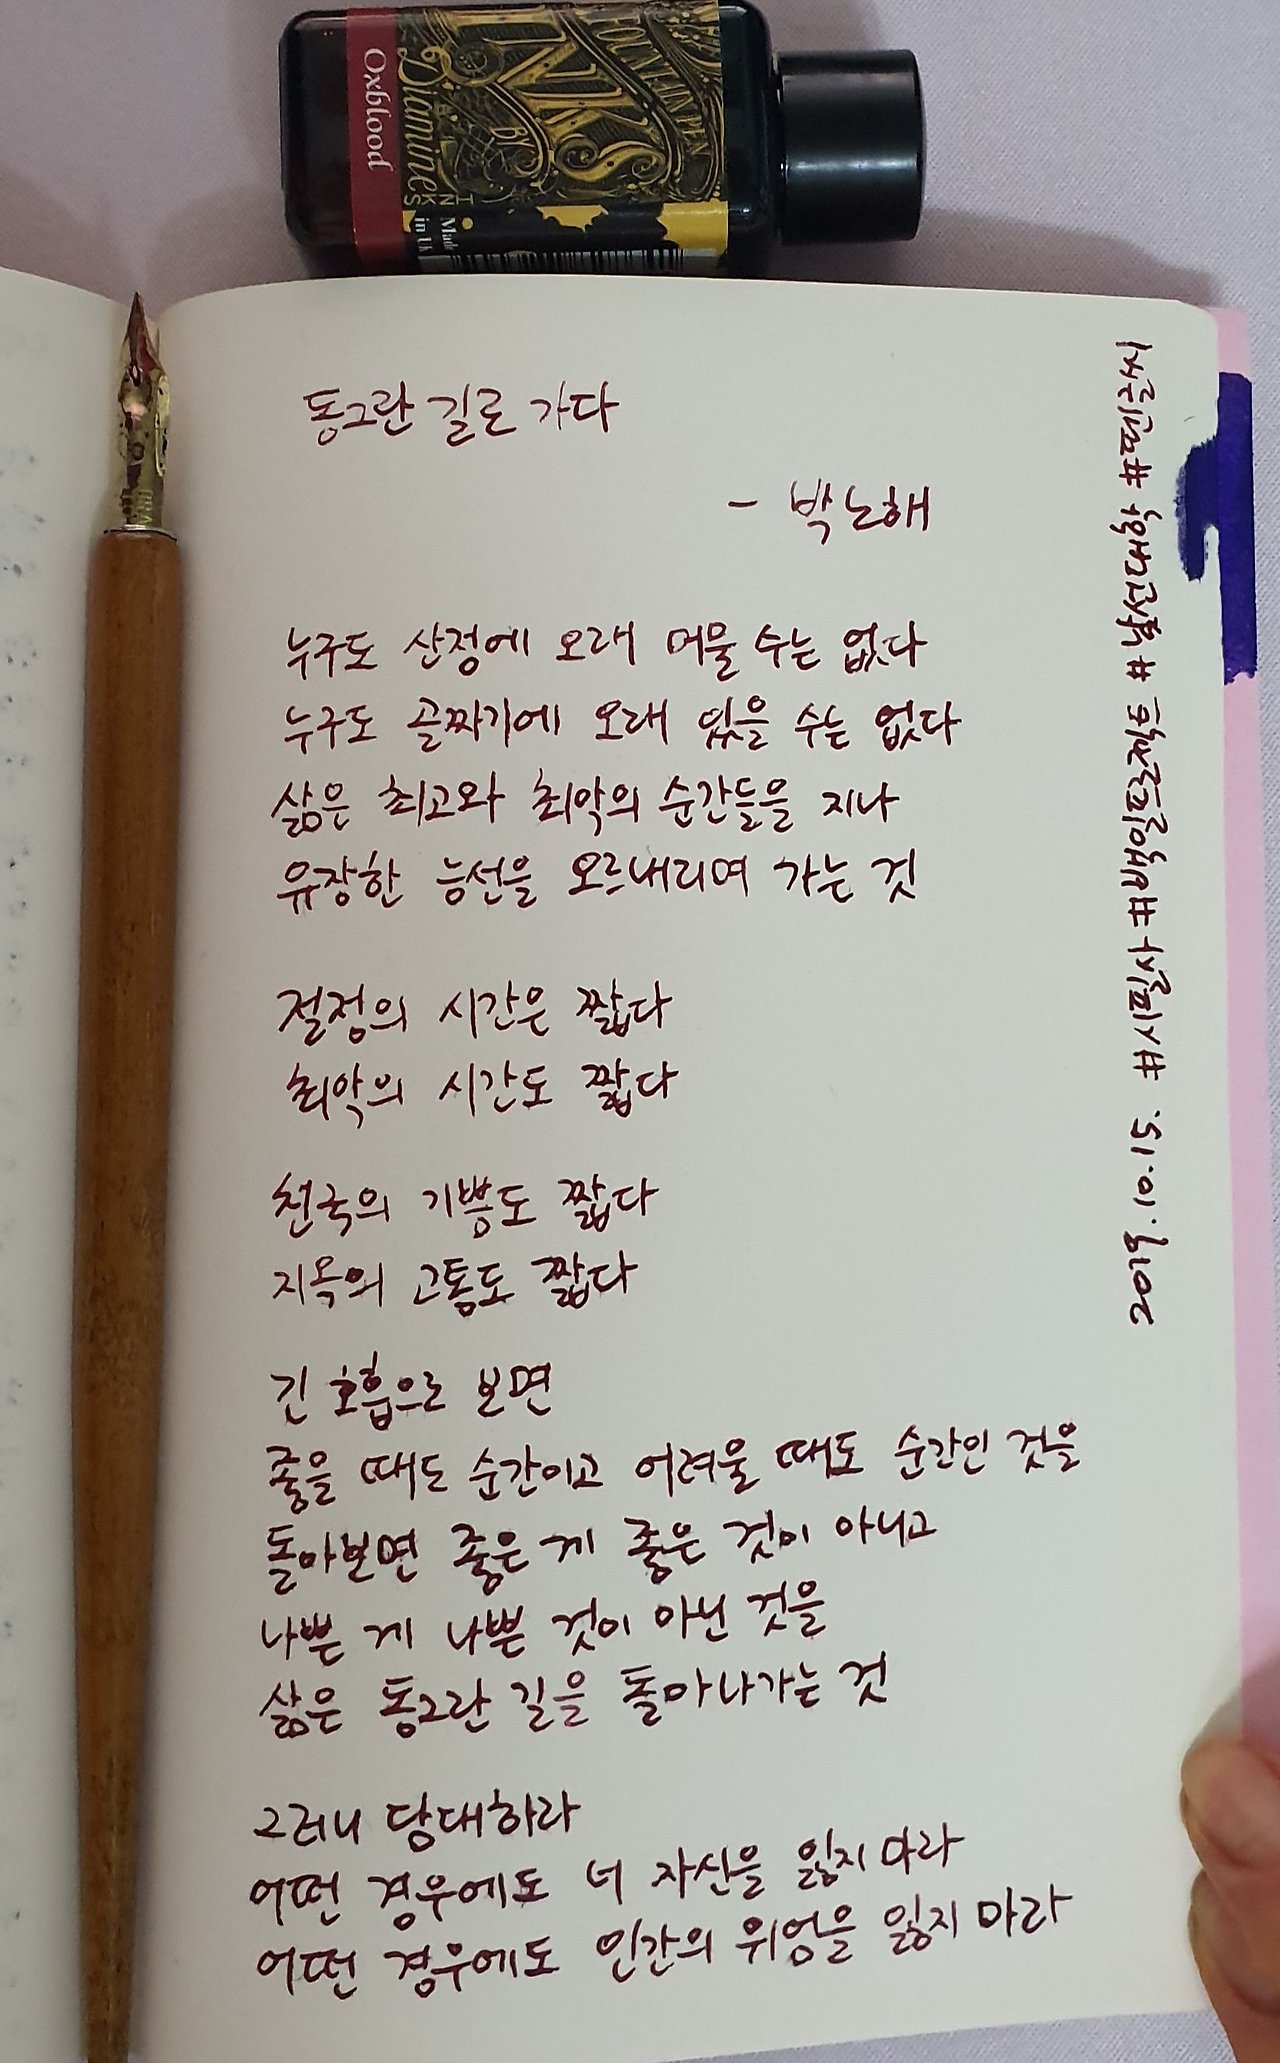 FOUNTAIN PEN
INKS
BY
Diamine
INKS
Oxblood
Made
in UK
동그란 길로 가다
- 박노해
누구도 산정에 오래 머물 수는 없다
누구도 골짜기에 오래 있을 수는 없다
삶은 최고와 최악의 순간들을 지나
유장한 능선을 오르내리며 가는 것
절정의 시간은 짧다
최악의 시간도 짧다
천국의 기쁨도 짧다
지옥의 고통도 짧다
긴 호흡으로 보면
좋을 때도 순간이고 어려울 때도 순간인 것을
돌아보면 좋은 게 좋은 것이 아니고
나쁜 게 나쁜 것이 아닌 것을
삶은 동그란 길을 돌아나가는 것
그러니 담대하라
어떤 경우에도 너 자신을 잃지 마라
어떤 경우에도 인간의 위엄을 잃지 마라
2019. 10. 15.